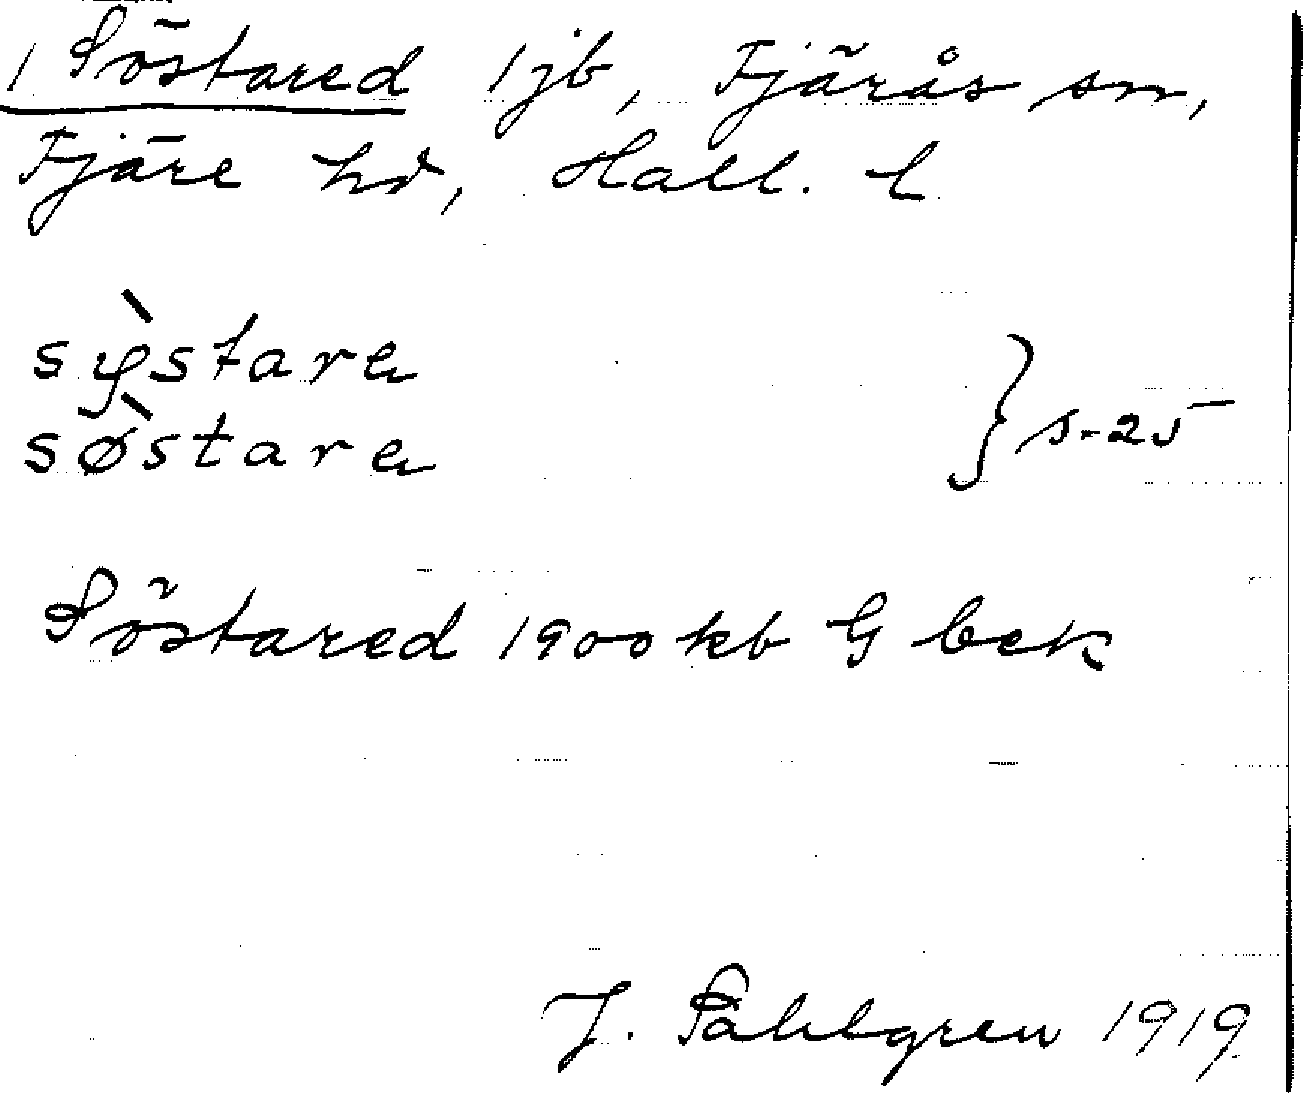 1 Söstared 1 jb, Fjärås sn,
Fjäre hd, Hall. l
sỳstare
sø̀stare } s. 25
Söstared 1900 kb G bek
J. Sahlgren 1919